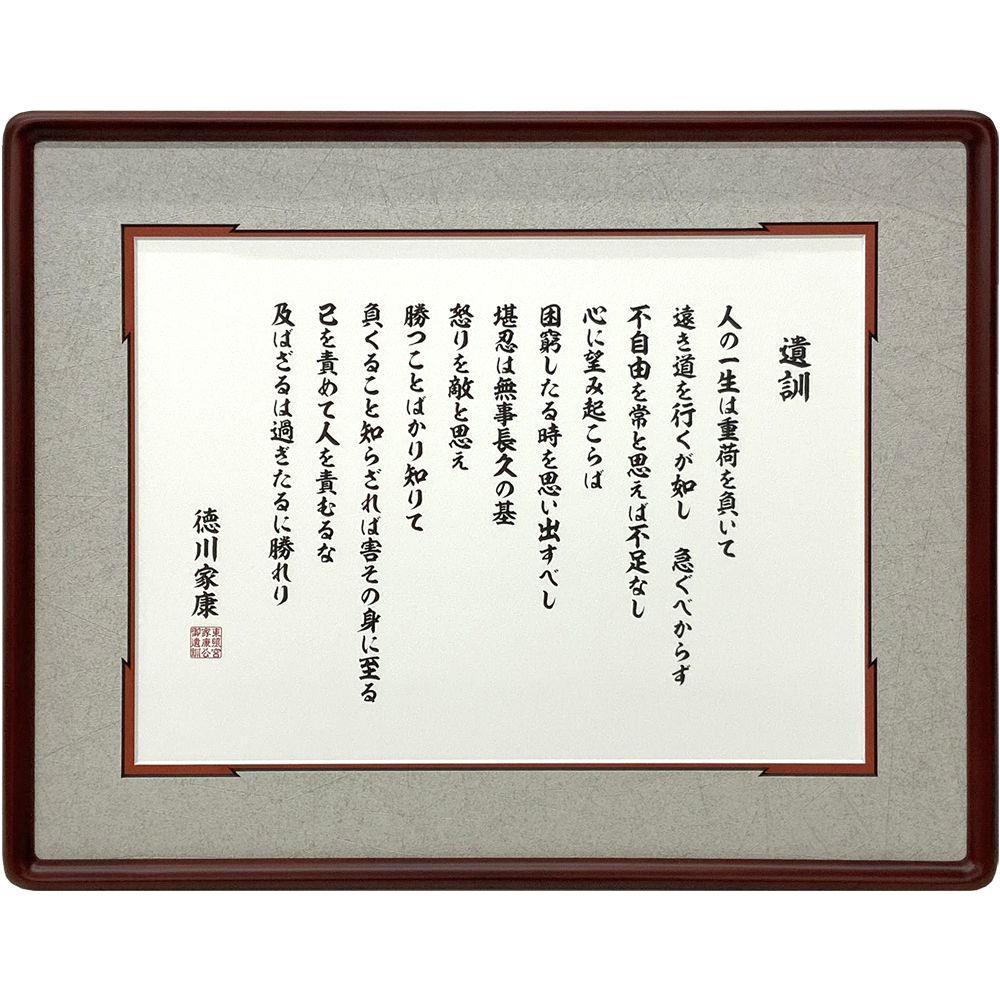 遺訓
人の一生は重荷を負いて
遠き道を行くが如し　急ぐべからず
不自由を常と思えば不足なし
心に望み起こらば
困窮したる時を思い出すべし
堪忍は無事長久の基
怒りを敵と思え
勝つことばかり知りて
負くること知らざれば害その身に至る
己を責めて人を責むるな
及ばざるは過ぎたるに勝れり
徳川家康
東照宮
家康公
御遺訓